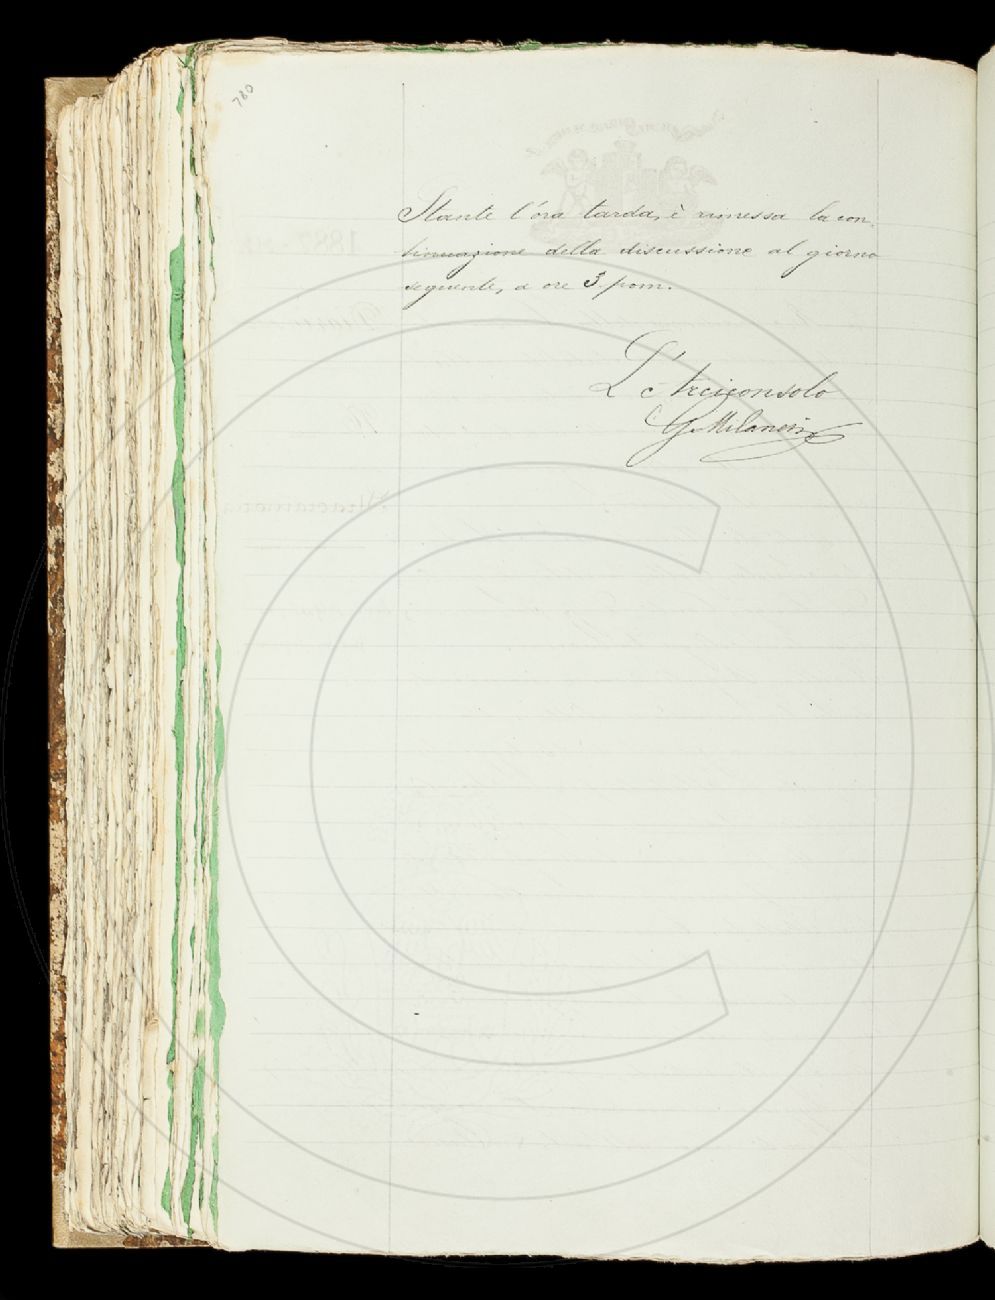 780
Stante l'ora tarda, è rimessa la con
tinuazione della discussione al giorno
seguente, a ore 3 pom.
L'Arciconsolo
G. Milanesi